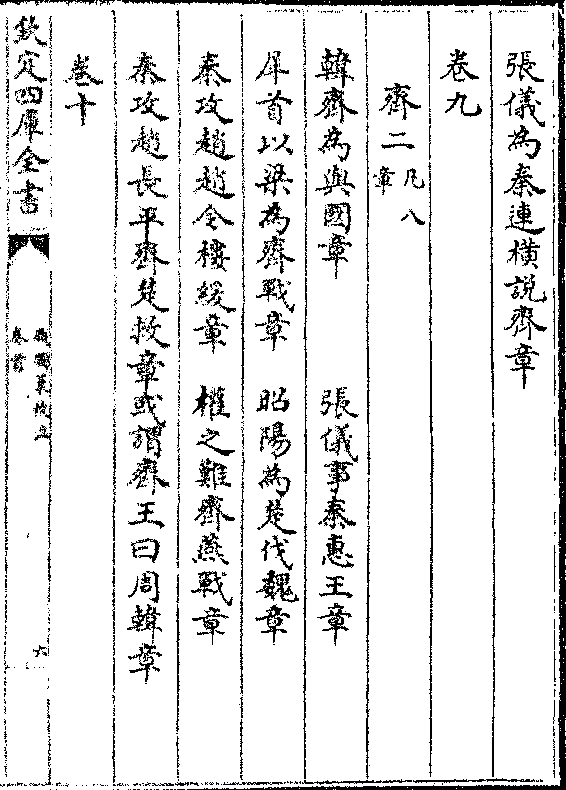 張儀為秦連橫説齊章
卷九
齊二凡八章
韓齊為與國章　張儀事秦惠王章
犀首以梁為齊戰章　昭陽為楚伐魏章
秦攻趙趙令樓緩章　權之難齊燕戰章
秦攻趙長平齊楚救章　或謂齊王曰周韓章
卷十
欽定四庫全書
戰國策校注
卷首
六